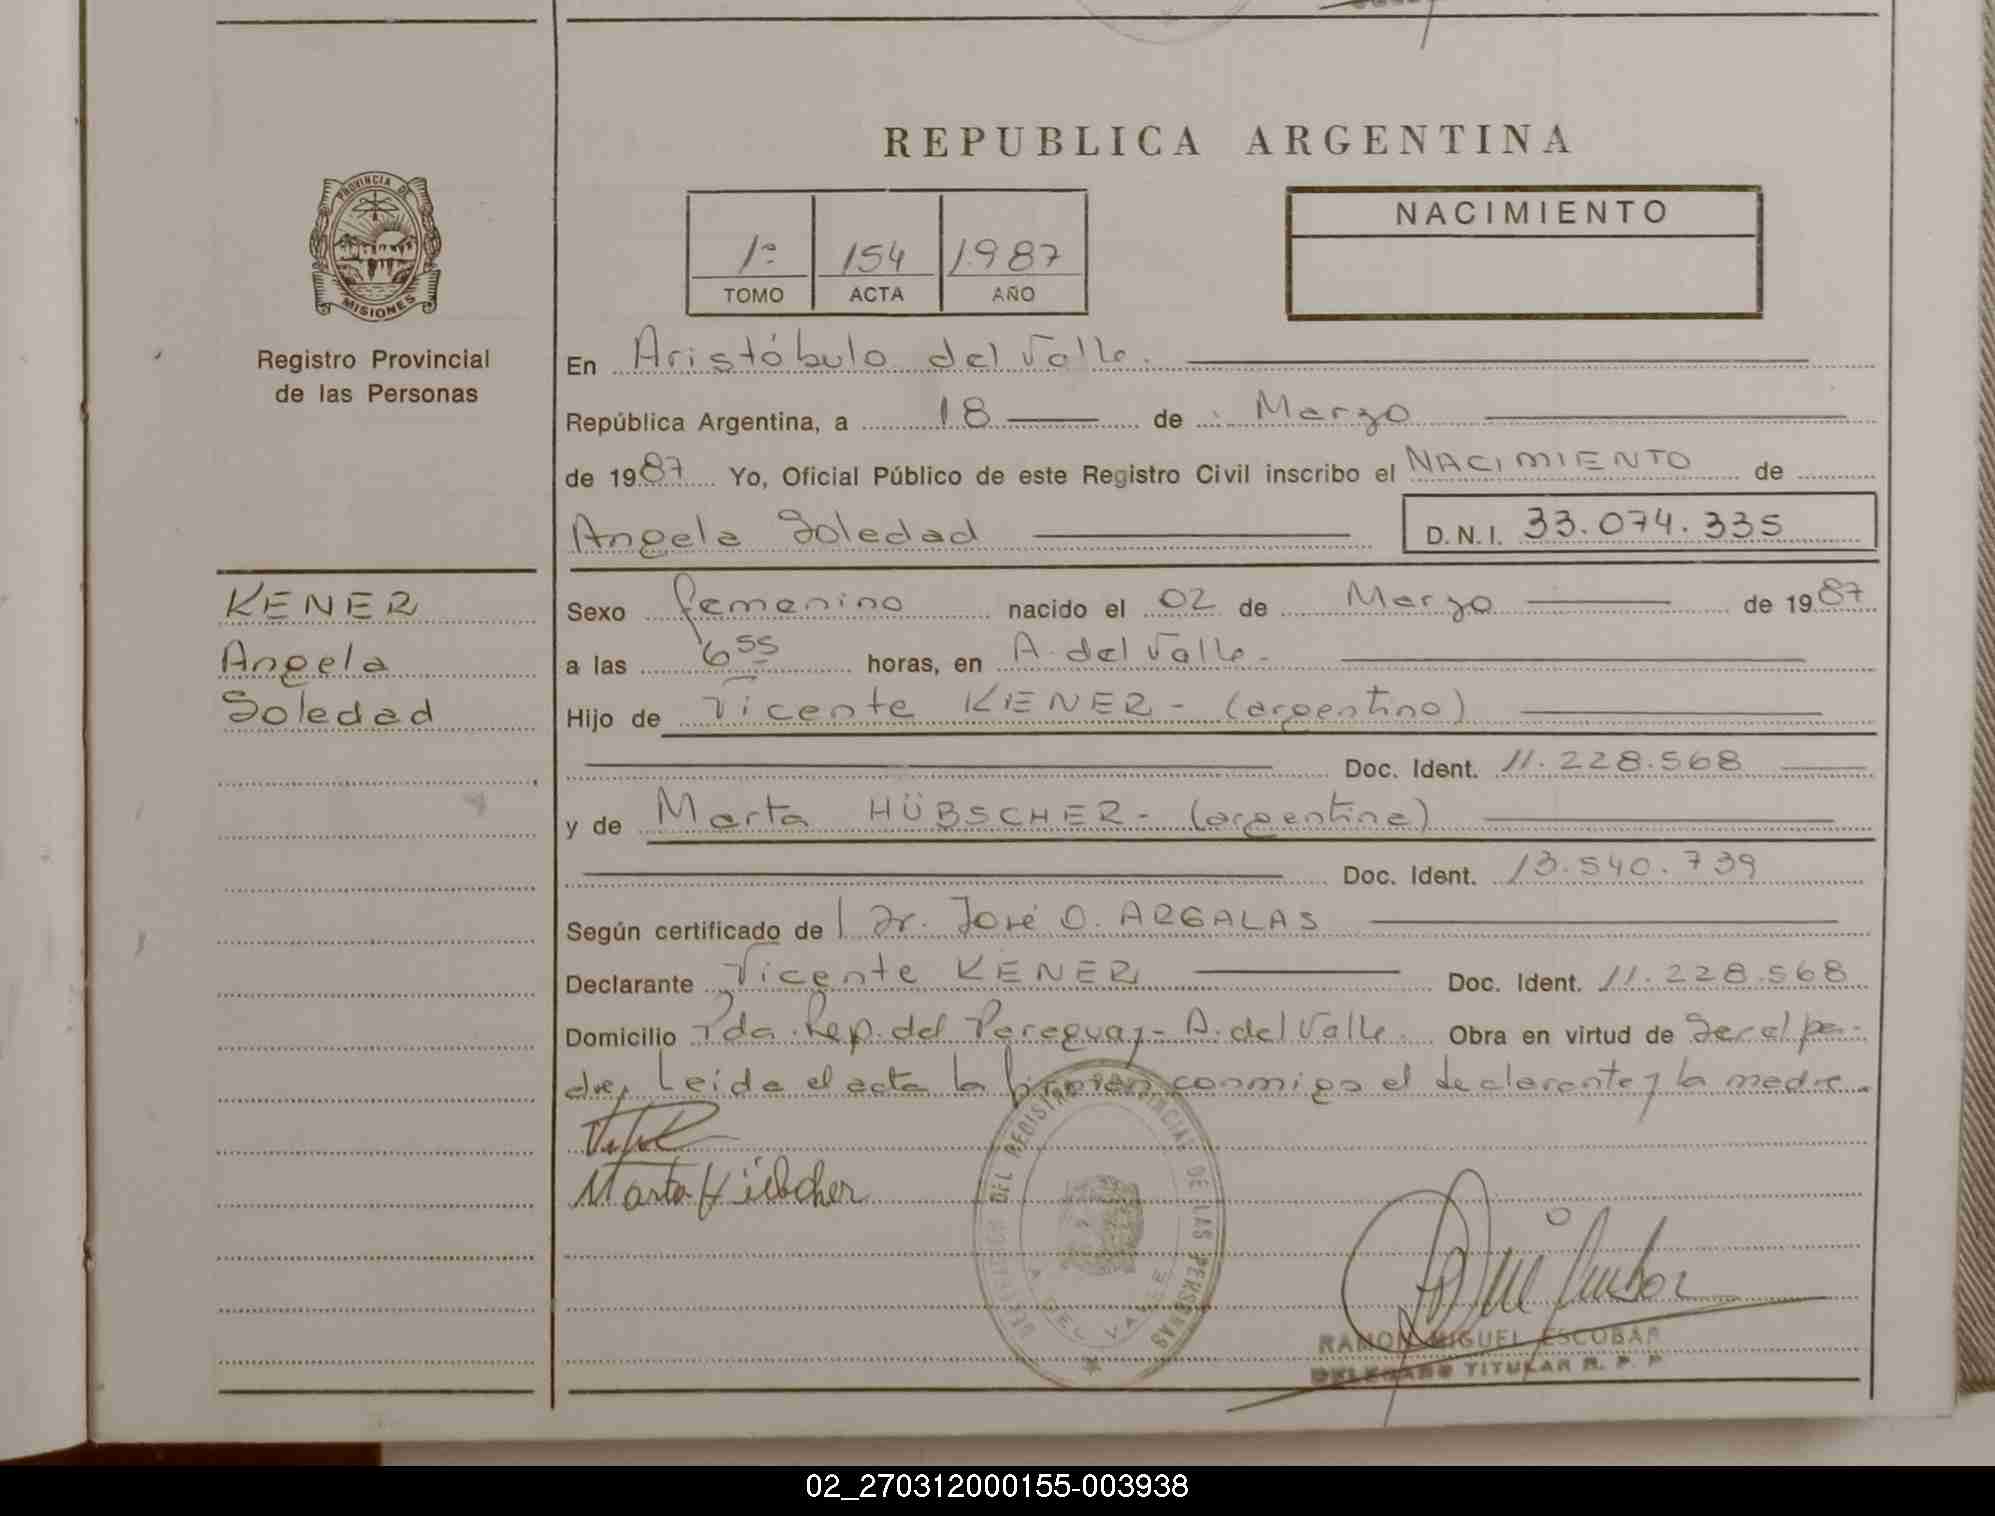 REPUBLICA ARGENTINA
PROVINCIA DE
MISIONES
Registro Provincial
de las Personas
1º 154 1987
TOMO ACTA AÑO
NACIMIENTO
En Aristóbulo del Valle.
República Argentina, a 18 de Marzo
de 1987 Yo, Oficial Público de este Registro Civil inscribo el NACIMIENTO de
Angela Soledad D.N.I. 33.074.335
KENER
Angela
Soledad
Sexo femenino nacido el 02 de Marzo de 1987
a las 6 55 horas, en A. del Valle.-
Hijo de Vicente KENER - (argentino)
Doc. Ident. 11.228.568
y de Marta HÜBSCHER - (argentina)
Doc. Ident. 13.540.739
Según certificado de Dr. José O. ARGALAS
Declarante Vicente KENER Doc. Ident. 11.228.568
Domicilio Pda. Rep. del Paraguay - A. del Valle. Obra en virtud de Ser el pa-
dre, Leída el acta la firman conmigo el declarante y la madre.
Marta Hübscher
DEL REGISTRO PROVINCIAL DE LAS PERSONAS
A. DEL VALLE
RAMON MIGUEL ESCOBAR
DELEGADO TITULAR R. P. P.
02_270312000155-003938